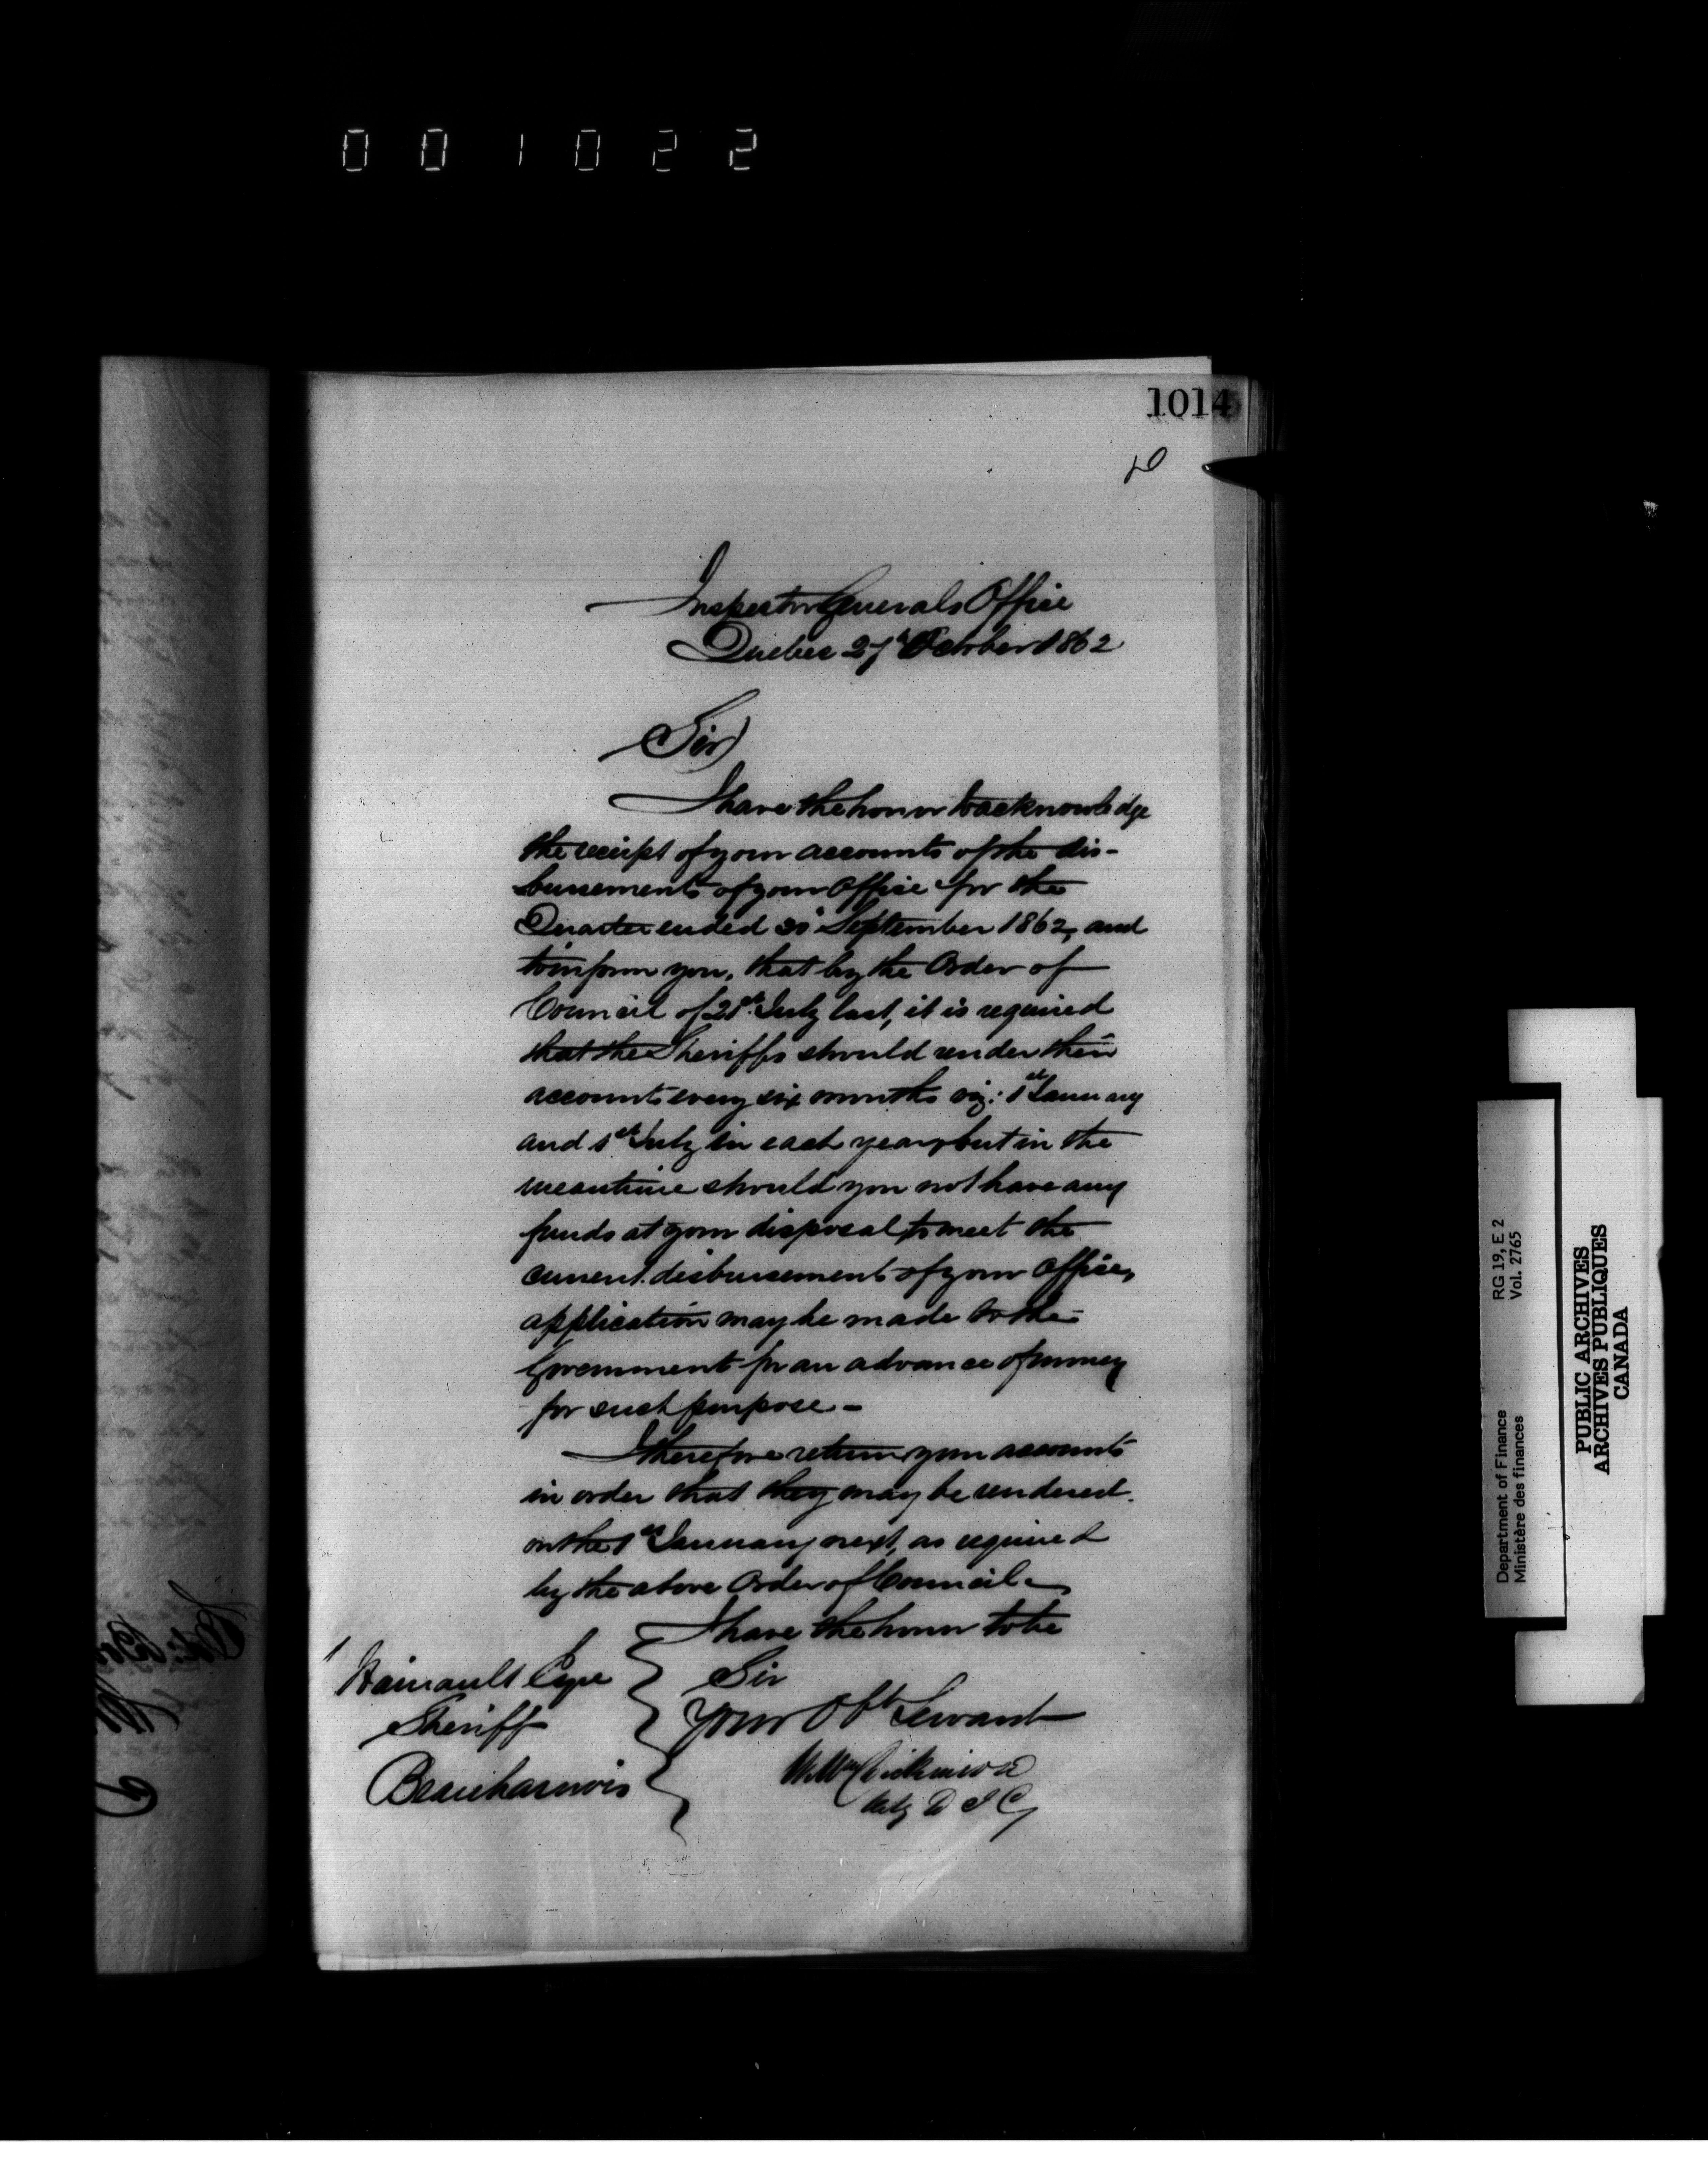 001022
1014
Inspector Generals Office
Quebec 27th October 1862
Sir
I have the honor to acknowledge
the receipt of your accounts of the dis-
bursements of your Office for the
Quarter ended 30th September 1862, and
to inform you, that by the Order of
Council of 21st July last, it is required
that the Sheriffs should render their
accounts every six months viz: 1st January
and 1st July in each year, but in the
meantime should you not have any
funds at your disposal to meet the
current disbursements of your Office,
application may be made to the
Government for an advance of money
for such purpose -
I therefore return your accounts
in order that they may be rendered
on the 1st January next, as required
by the above Order of Council -
I have the honor to be
Sir
Your Obt Servant
Wm Dickinson
Actg D I G
Hainault Esqre
Sheriff
Beauharnois
Department of Finance RG 19, E 2
Ministère des finances Vol. 2765
PUBLIC ARCHIVES
ARCHIVES PUBLIQUES
CANADA